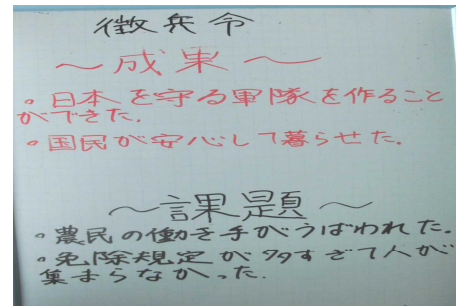 徴兵令
〜成果〜
。日本を守る軍隊を作ること
ができた.
。国民が安心して暮らせた.
〜課題〜
。農民の働き手がうばわれた.
。免除規定が多すぎて人が
集まらなかった.